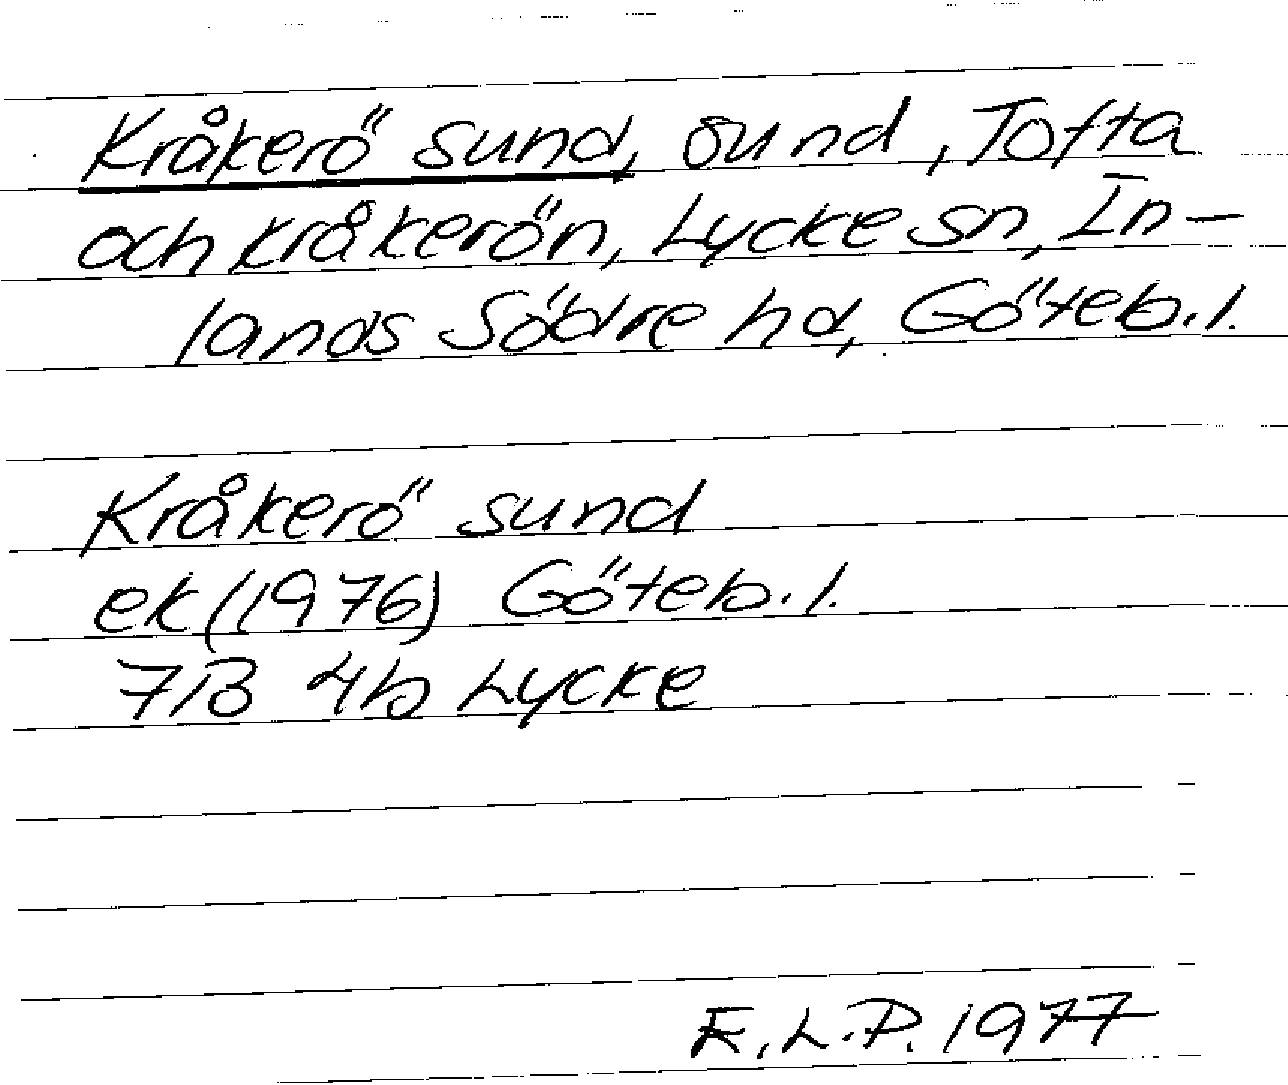 Kråkerö sund, sund, Tofta
och Kråkerön, Lycke sn, In-
lands Södre hd, Göteb.l.
Kråkerö sund
ek (1976) Göteb.l.
7B 4b Lycke
E.L.P. 1977